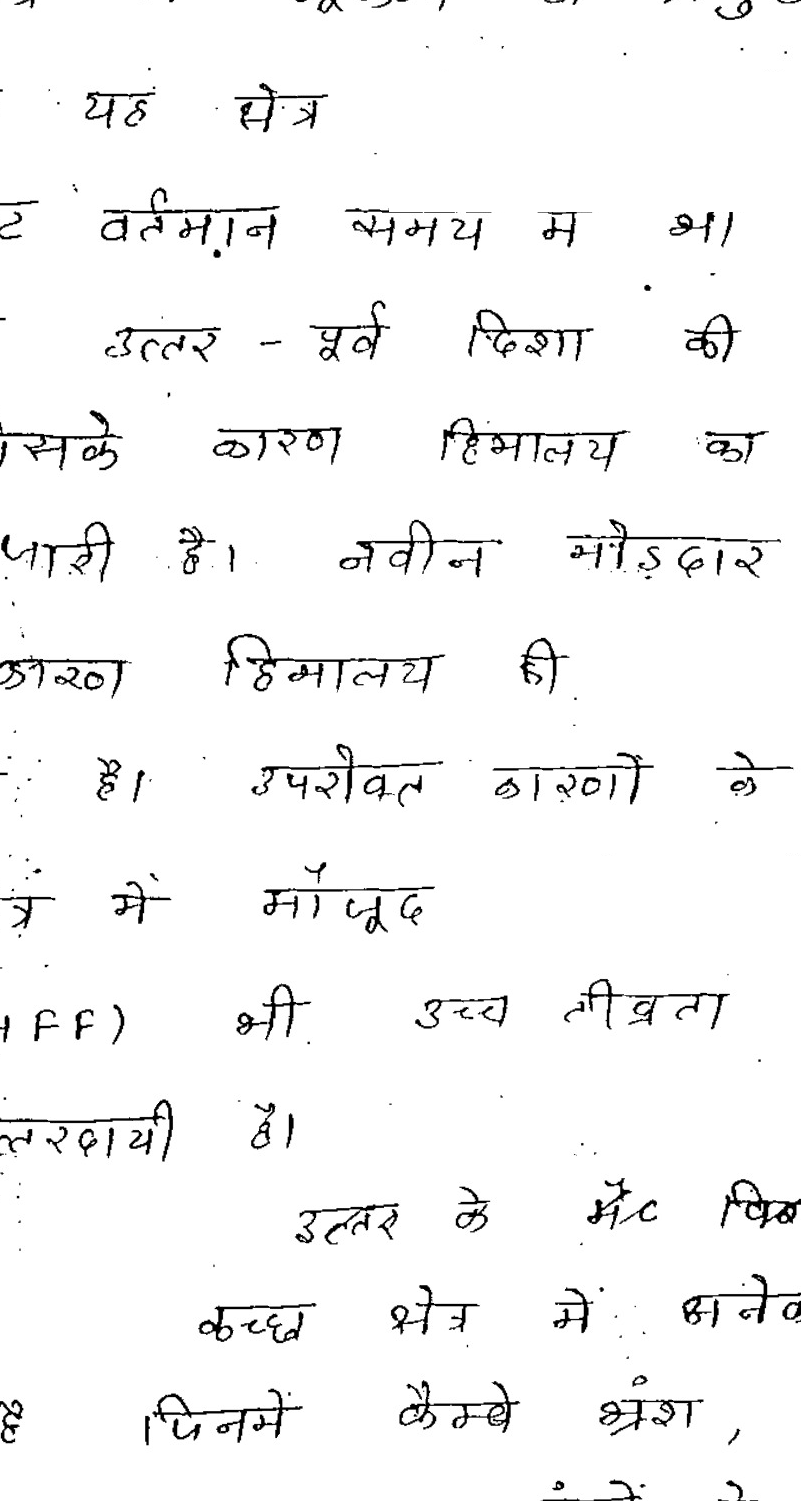 यह क्षेत्र
वर्तमान समय म भा
उत्तर - पूर्व दिशा की
कारण हिमालय का
जारी है। नवीन मोड़दार
कारण हिमालय ही
है। उपरोक्त कारणों के
में मौजूद
FF) भी उच्च तीव्रता
त्तरदायी है।
उत्तर के मैट
कच्छ क्षेत्र में अनेक
है जिनमें कैम्बे भ्रंश,